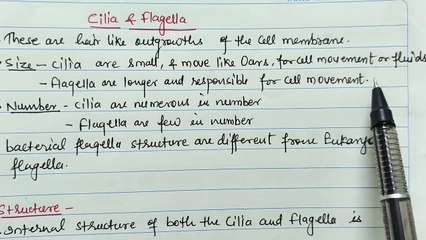 Cilia & Flagella
• These are hair like outgrowths of the cell membrane.
• Size - Cilia are small, & move like Oars, for cell movement or fluids
- flagella are longer and responsible for cell movement.
• Number - Cilia are numerous in number
- Flagella are few in number
bacterial flagella structure are different from
flagella.
Structure -
Internal structure of both the Cilia and Flagella is